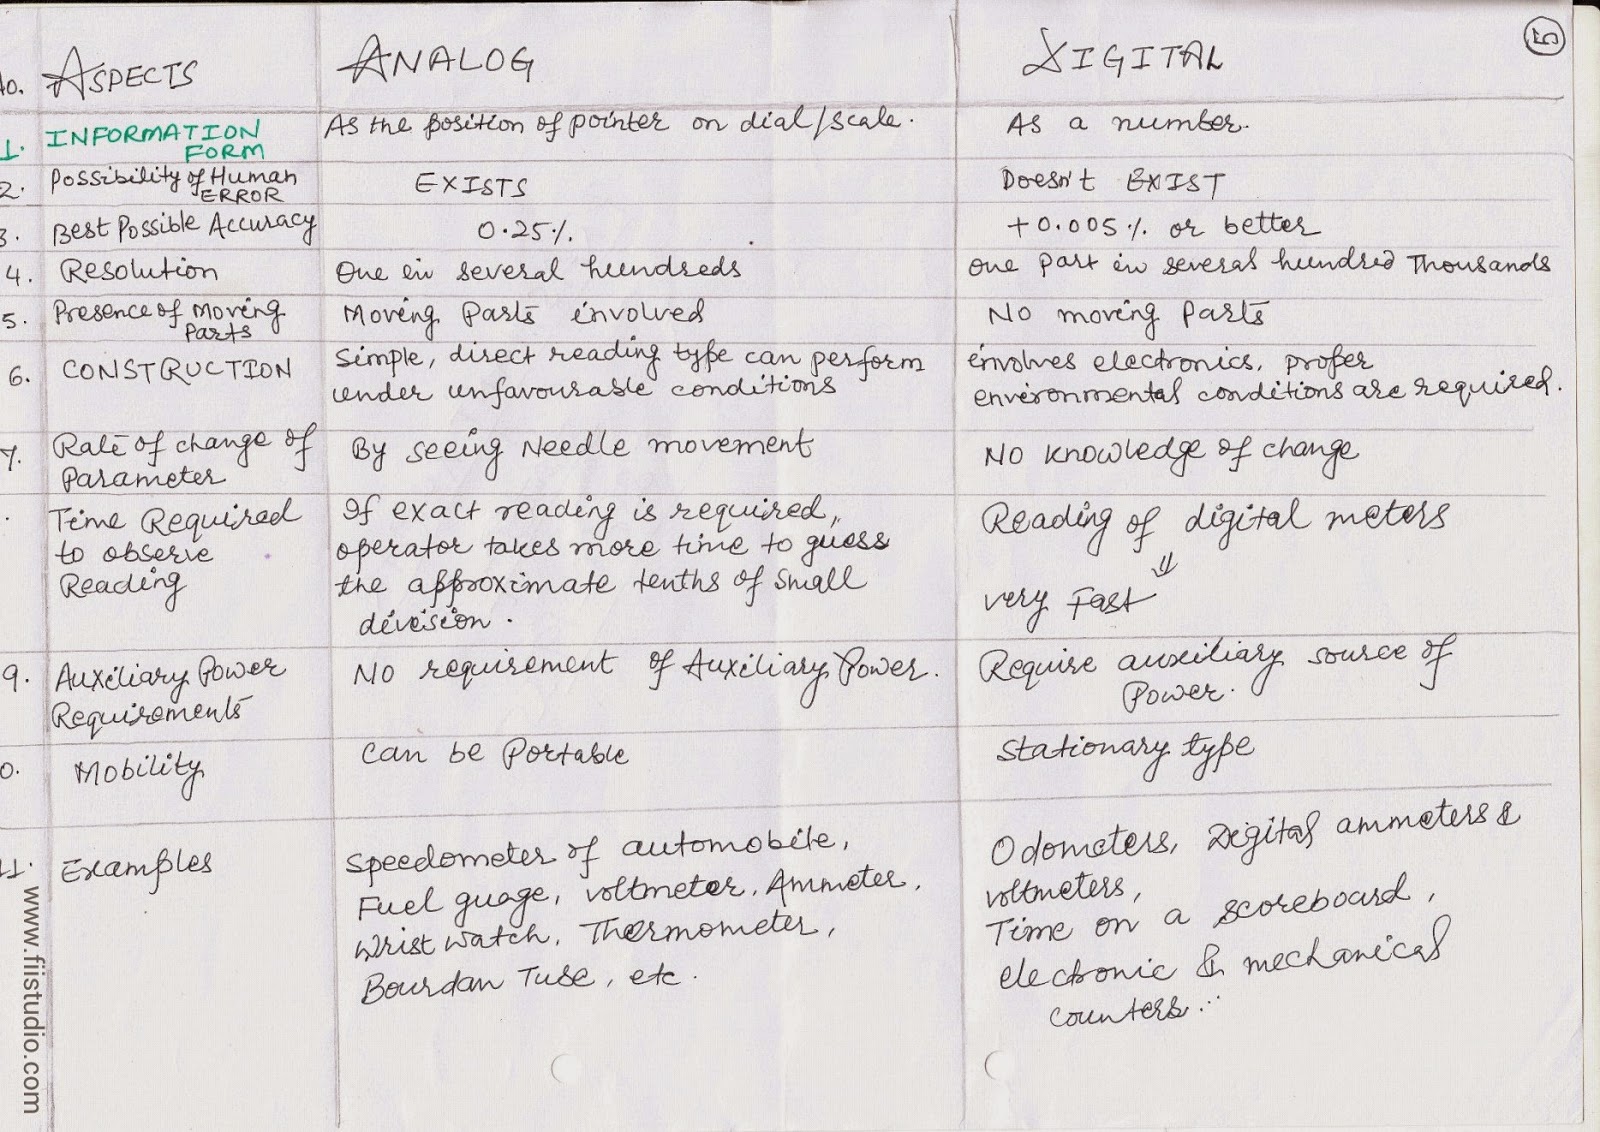 5
No. ASPECTS ANALOG DIGITAL
1. INFORMATION FORM As the position of pointer on dial/scale. As a number.
2. Possibility of Human ERROR EXISTS Doesn't EXIST
3. Best Possible Accuracy 0.25% +0.005% or better
4. Resolution One in several hundreds One part in several hundred Thousands
5. Presence of Moving Parts Moving Parts involved No moving Parts
6. CONSTRUCTION Simple, direct reading type can perform
under unfavourable conditions
involves electronics, proper
environmental conditions are required.
7. Rate of change of
Parameter
By seeing Needle movement
No knowledge of change
Time Required
to observe
Reading
If exact reading is required,
operator takes more time to guess
the approximate tenths of small
division.
Reading of digital meters
⇓
very Fast
9. Auxiliary Power
Requirements
No requirement of Auxiliary Power.
Require auxiliary source of
Power.
0. Mobility Can be Portable Stationary type
11. Examples
Speedometer of automobile,
Fuel guage, voltmeter, Ammeter,
Wrist watch, Thermometer,
Bourdan Tuse, etc.
Odometers, Digital ammeters &
voltmeters,
Time on a scoreboard,
electronic & mechanical
counters...
www.fiistudio.com